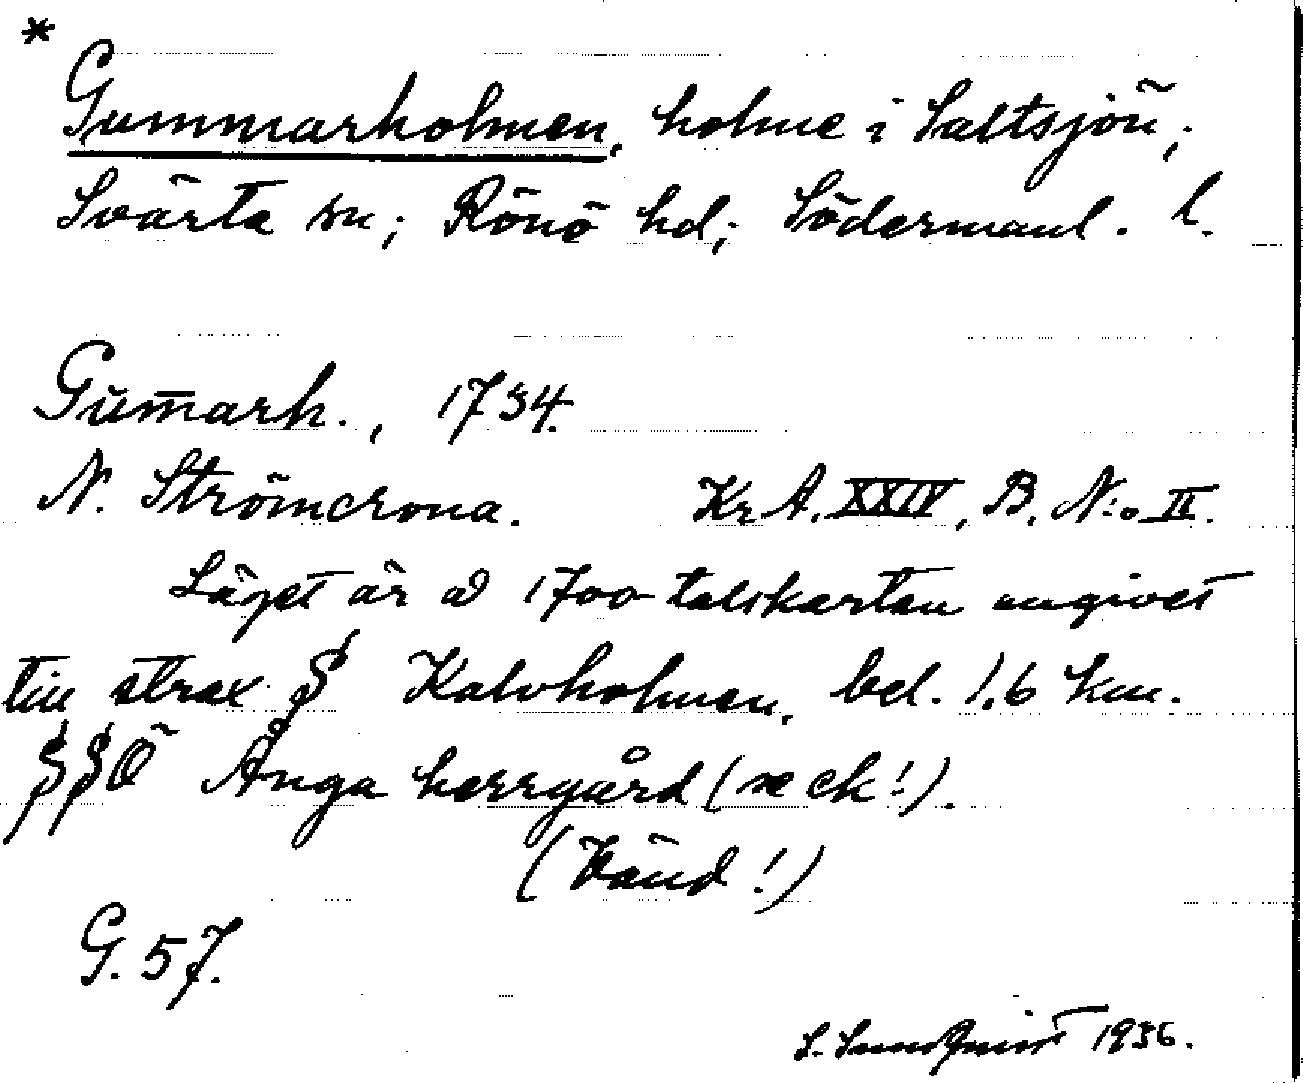 *
Gummarholmen, holme i Saltsjön,
Svärta sn; Rönö hd; Södermanl. l.
Gum̄arh., 1734.
N. Strömcrona. Kr. A. XXIV, B. N:o II.
Läget är å 1700-talskartan angivet
till strax S Kalvholmen, bel. 1.6 km.
SSÖ Ånga herrgård (se ek!).
(Vänd!)
G. 57.
S. Sundquist 1936.